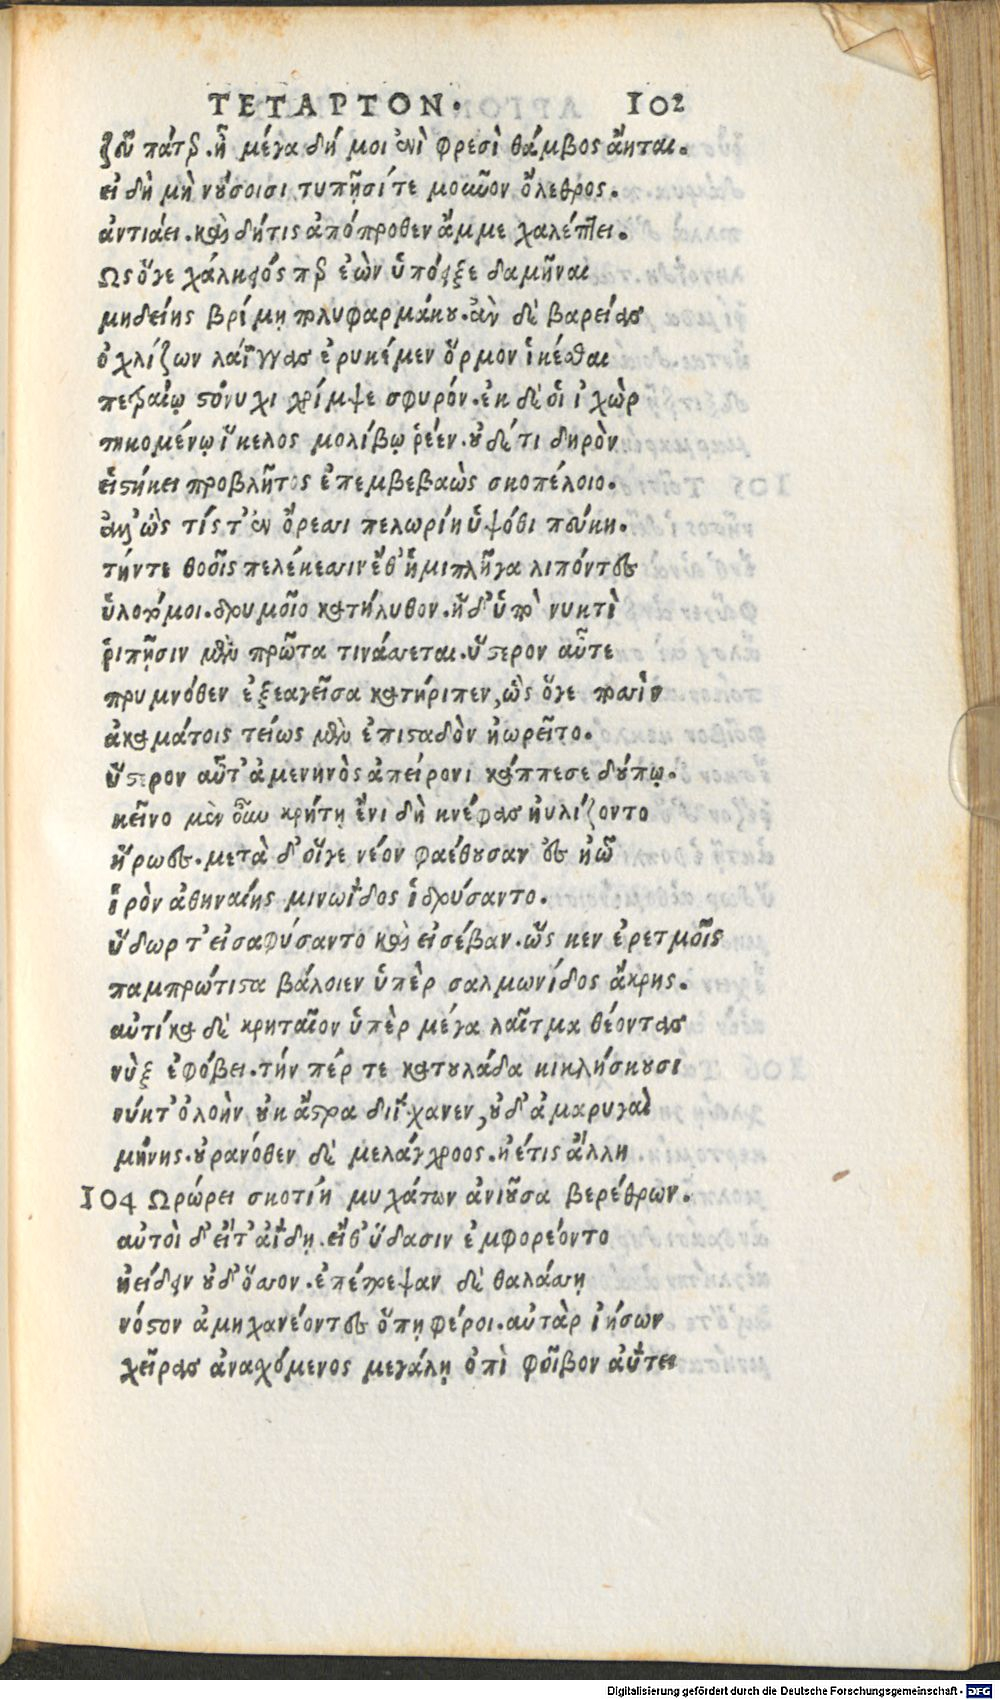 ΤΕΤΑΡΤΟΝ. 102
ζεῦ πάτερ. ἦ μέγα δή μοι ἐνὶ φρεσὶ θάμβος ἄηται.
εἰ δὴ μὴ νούσοισι τυπῇσί τε μοῦνον ὄλεθρος.
ἀντιάει. καὶ δήτις ἀπόπροθεν ἄμμε χαλέπτει.
Ως ὅγε χάλκεός περ ἐὼν ὑπόειξε δαμῆναι
μηδείης βρίμῃ πολυφαρμάκου. ἂν δὲ βαρείας
ὀχλίζων λάϊγγας ἐρυκέμεν ὅρμον ἱκέσθαι
πετραίῳ στόνυχι χρίμψε σφυρόν. ἐκ δέ οἱ ἰχὼρ
τηκομένῳ ἴκελος μολίβῳ ῥέεν. οὐδέ τι δηρὸν
εἱστήκει προβλῆτος ἐπεμβεβαὼς σκοπέλοιο.
ἀλλ' ὥς τίς τ' ἐν ὄρεσσι πελωρίη ὑψόθι πεύκη.
τήντε θοοῖς πελέκεσσιν ἔθ' ἡμιπλῆγα λιπόντες
ὑλοτόμοι. δρυμοῖο κατήλυθον. ἥ δ' ὑπὸ νυκτὶ
ῥιπῇσιν μὲν πρῶτα τινάσσεται. ὕστερον αὖτε
πρυμνόθεν ἐξεαγεῖσα κατήριπεν, ὣς ὅγε ποσσὶν
ἀκαμάτοις τείως μὲν ἐπισταδὸν ἠωρεῖτο.
ὕστερον αὖτ' ἀμενηνὸς ἀπείρονι κάππεσε δούπῳ.
κεῖνο μὲν οὖν κρήτῃ ἔνι δὴ κνέφας ηὐλίζοντο
ἥρωες. μετὰ δ' οἵγε νέον φαέθουσαν ἐς ἠῶ
ἱρὸν ἀθηναίης μινωΐδος ἱδρύσαντο.
ὕδωρ τ' εἰσαφύσαντο καὶ εἰσέβαν. ὥς κεν ἐρετμοῖς
παμπρώτιστα βάλοιεν ὑπὲρ σαλμωνίδος ἄκρης.
αὐτίκα δὲ κρηταῖον ὑπὲρ μέγα λαῖτμα θέοντας
νὺξ ἐφόβει. τήν πέρ τε κατουλάδα κικλήσκουσι
νύκτ' ὀλοὴν οὐκ ἄστρα διΐχανεν, οὐδ' ἀμαρυγαὶ
μήνης. οὐρανόθεν δὲ μελάγχροος. ἠέτις ἄλλη
104 Ωρώρει σκοτίη μυχάτων ἀνιοῦσα βερέθρων.
αὐτοὶ δ' εἴτ' ἀΐδῃ. εἴθ' ὕδασιν ἐμφορέοντο
ἠείδειν οὐδ' ὅσσον. ἐπέτρεψαν δὲ θαλάσσῃ
νόστον ἀμηχανέοντες ὅπῃ φέροι. αὐτὰρ ἰήσων
χεῖρας ἀναχόμενος μεγάλῃ ὀπὶ φοῖβον ἀΰτει
Digitalisierung gefördert durch die Deutsche Forschungsgemeinschaft - DFG